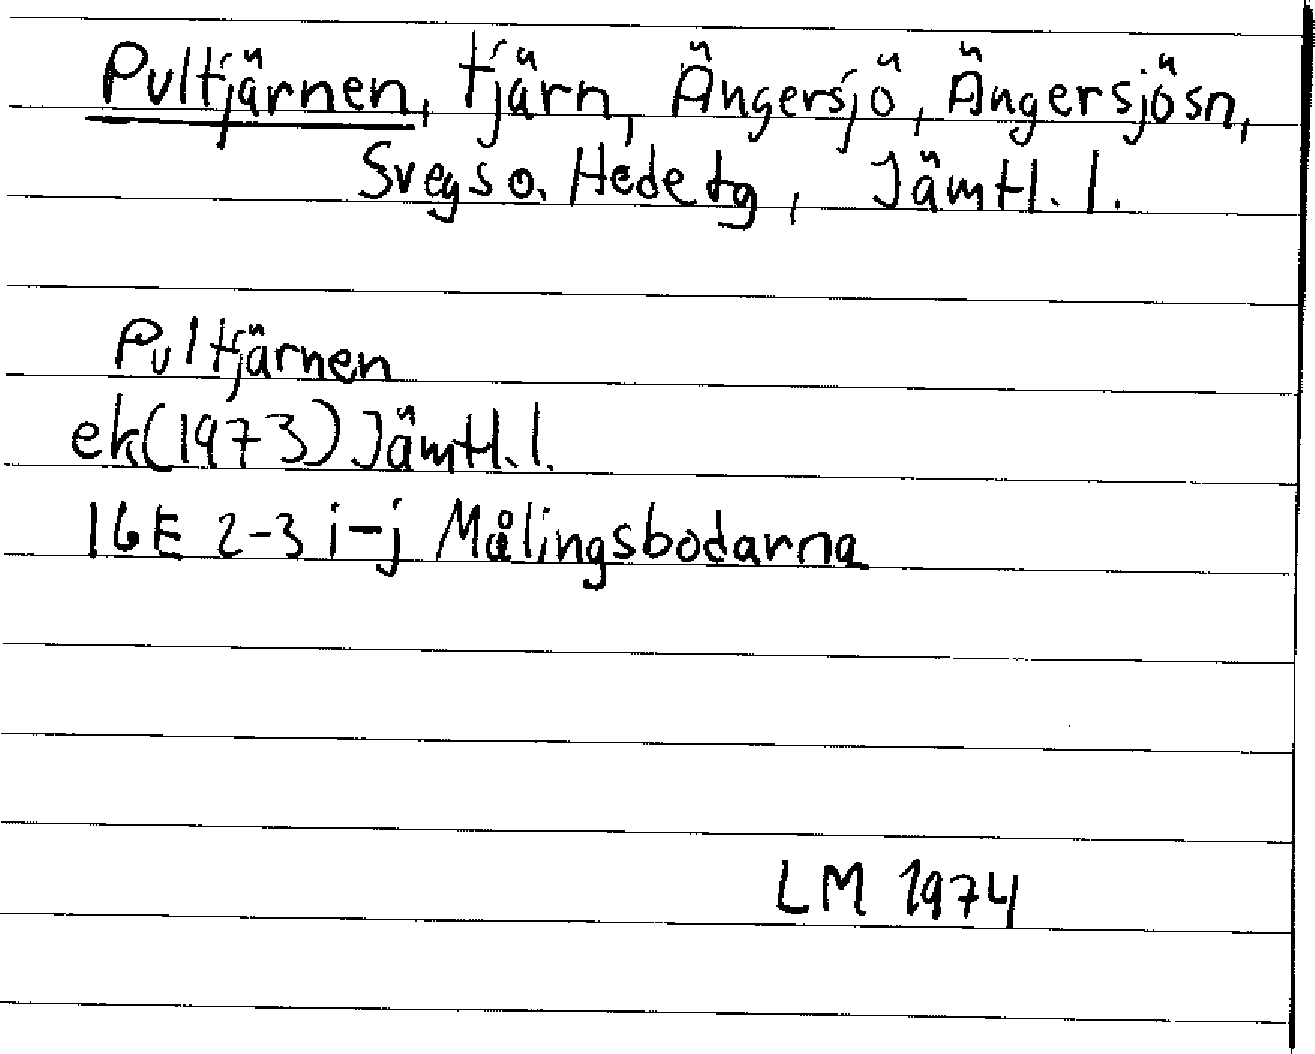 Pultjärnen, tjärn, Ängersjö, Ängersjösn,
Svegs o. Hede tg, Jämtl. l.
Pultjärnen
ek(1973) Jämtl. l.
16E 2-3 i-j Målingsbodarna
LM 1974